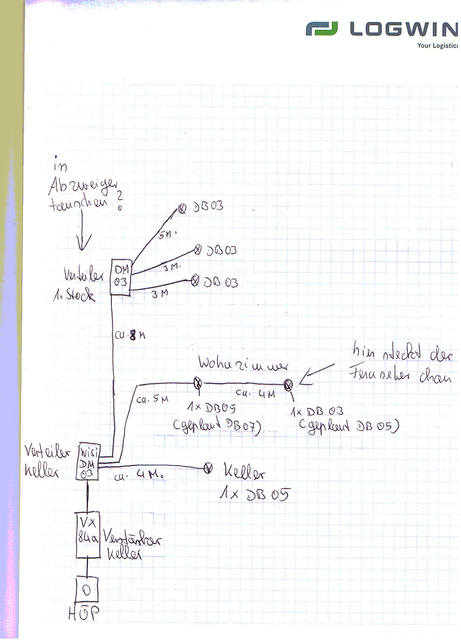 LOGWIN
Your Logistics
in
Abzweiger
tauschen?
DB03
5M.
DB03
3M.
DB03
3M
Verteiler
1. Stock
DM
03
ca. 8M
Wohnzimmer
hier steckt der
Fernseher dran
ca. 5M
ca. 4M
1x DB05
(geplant DB07)
1x DB03
(geplant DB05)
Verteiler
Keller
WISI
DM
03
ca. 4M.
Keller
1x DB05
VX
84a
Verstärker
Keller
0
HÜP